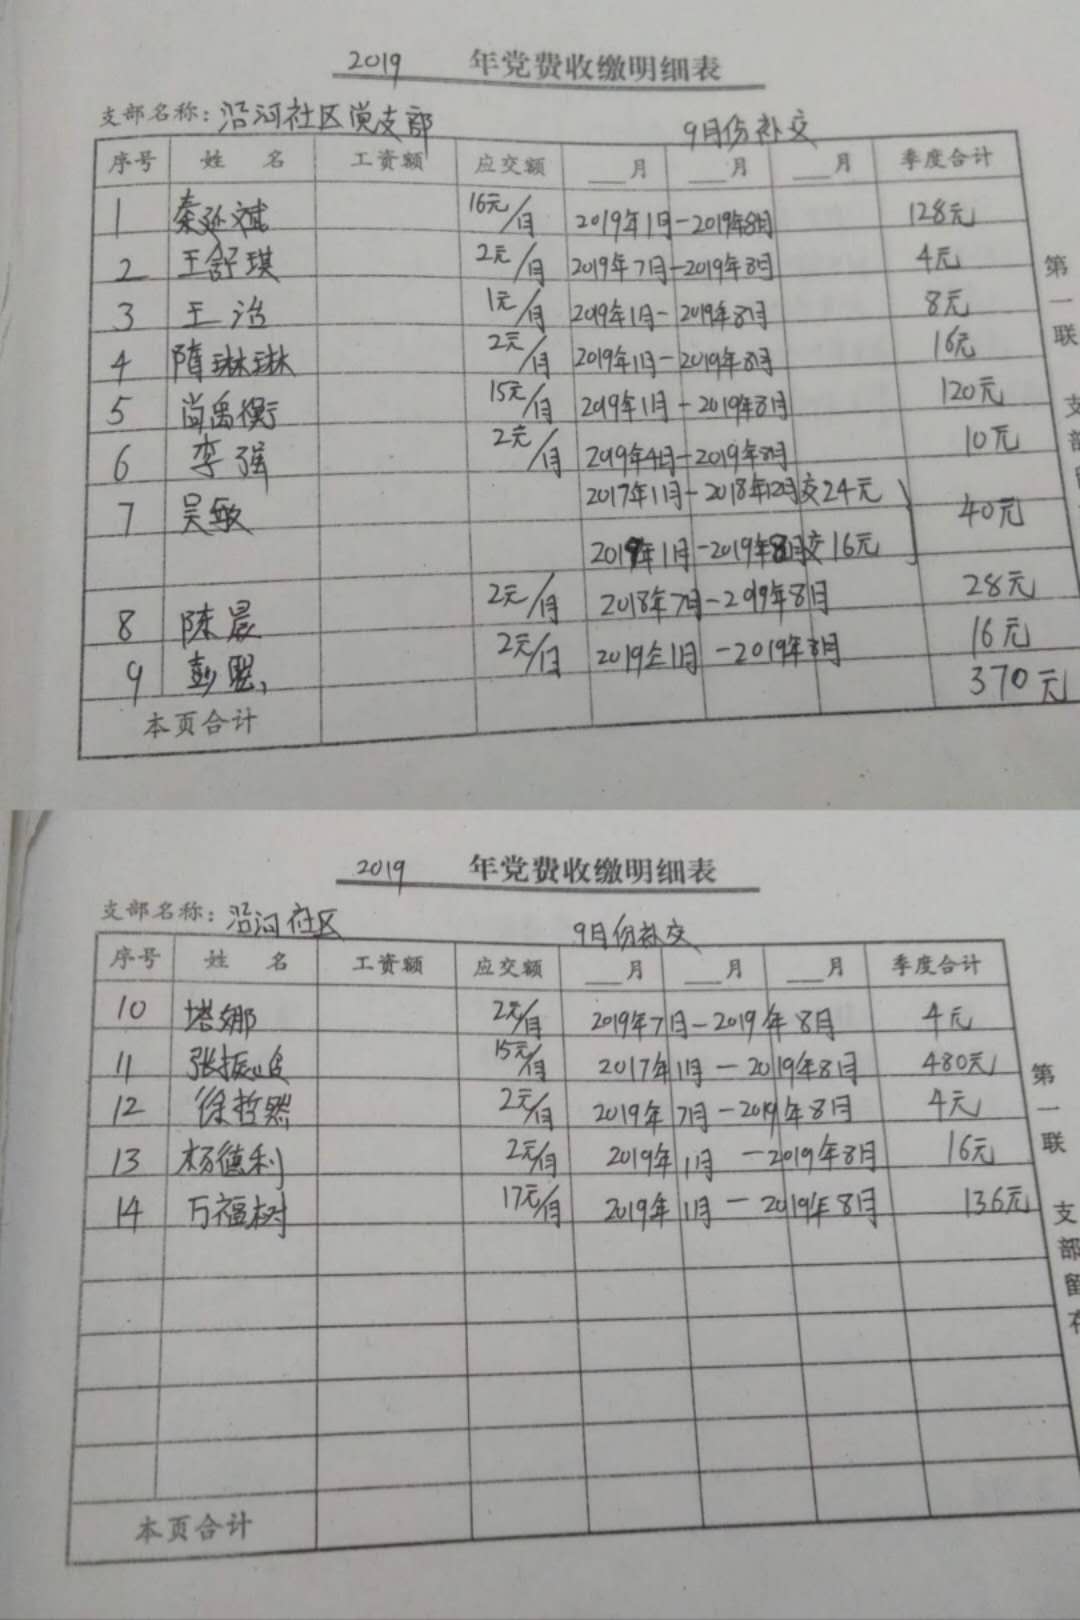 2019 年党费收缴明细表
支部名称：沿河社区党支部 9月份补交
序号 姓 名 工资额 应交额 ___月 ___月 ___月 季度合计
1 秦延斌 16元/月 2019年1月-2019年8月 128元
2 王舒琪 2元/月 2019年7月-2019年8月 4元
3 王治 1元/月 2019年1月-2019年8月 8元
4 隋琳琳 2元/月 2019年1月-2019年8月 16元
5 尚禹衡 15元/月 2019年1月-2019年8月 120元
6 李强 2元/月 2019年4月-2019年8月 10元
7 吴敏 2017年11月-2018年12月交24元 40元
2019年1月-2019年8月交16元
8 陈晨 2元/月 2018年7月-2019年8月 28元
9 彭 2元/月 2019年1月-2019年8月 16元
本页合计 370元
第一联 支部
2019 年党费收缴明细表
支部名称：沿河社区 9月份补交
序号 姓 名 工资额 应交额 ___月 ___月 ___月 季度合计
10 塔娜 2元/月 2019年7月-2019年8月 4元
11 张振 15元/月 2017年1月-2019年8月 480元
12 徐哲然 2元/月 2019年7月-2019年8月 4元
13 杨德利 2元/月 2019年1月-2019年8月 16元
14 万福树 17元/月 2019年1月-2019年8月 136元
本页合计
第一联 支部留存